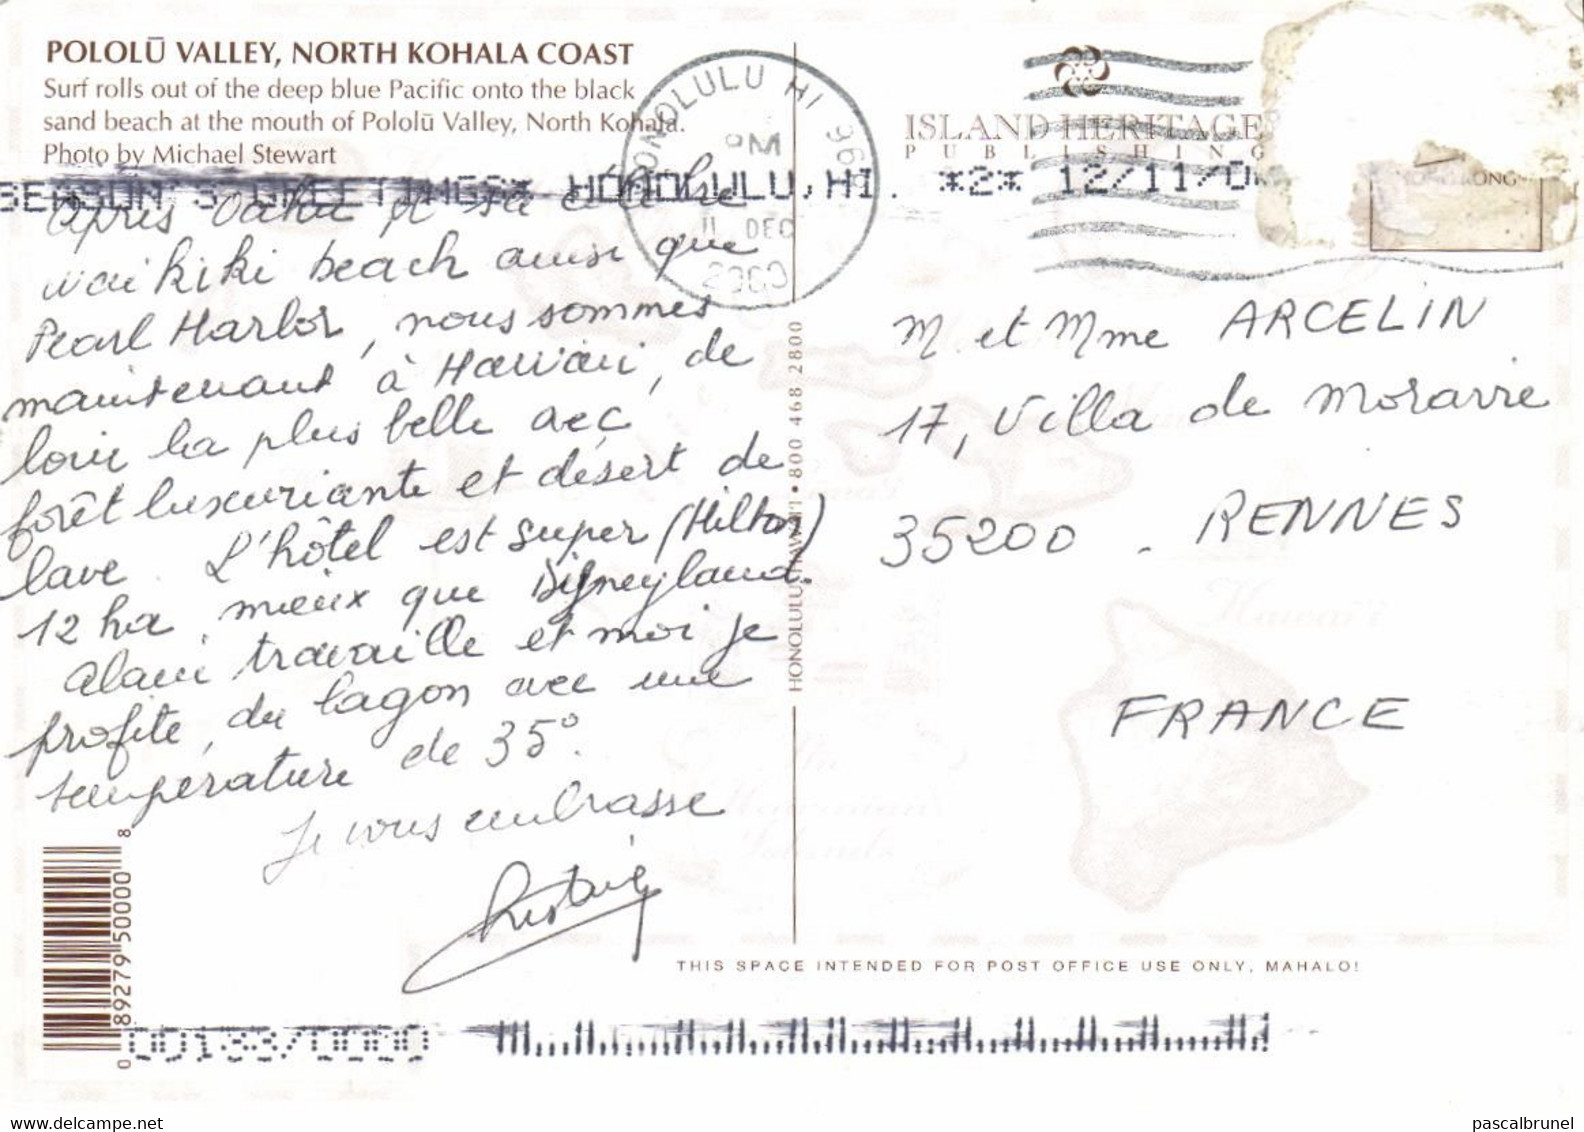 POLOLŪ VALLEY, NORTH KOHALA COAST
Surf rolls out of the deep blue Pacific onto the black
sand beach at the mouth of Pololū Valley, North Kohala.
Photo by Michael Stewart
SEASON'S GREETINGS* HONOLULU, HI. *2* 12/11/0
HONOLULU HI 96
PM
11 DEC
ISLAND HERITAGE
PUBLISHING
HONG KONG
après Oahu et sa célèbre
waikiki beach ainsi que
Pearl Harbor, nous sommes
maintenant à Hawaii, de
loin la plus belle avec
forêt luxuriante et désert de
lave. L'hôtel est super (Hilton)
12 ha, mieux que Disneyland.
Alain travaille et moi je
profite, du lagon avec une
température de 35°.
Je vous embrasse
M et Mme ARCELIN
17, Villa de Moravie
35200 - RENNES
FRANCE
HONOLULU, HAWAI'I • 800 468 2800
THIS SPACE INTENDED FOR POST OFFICE USE ONLY, MAHALO!
0 89279 50000 8
pascalbrunel